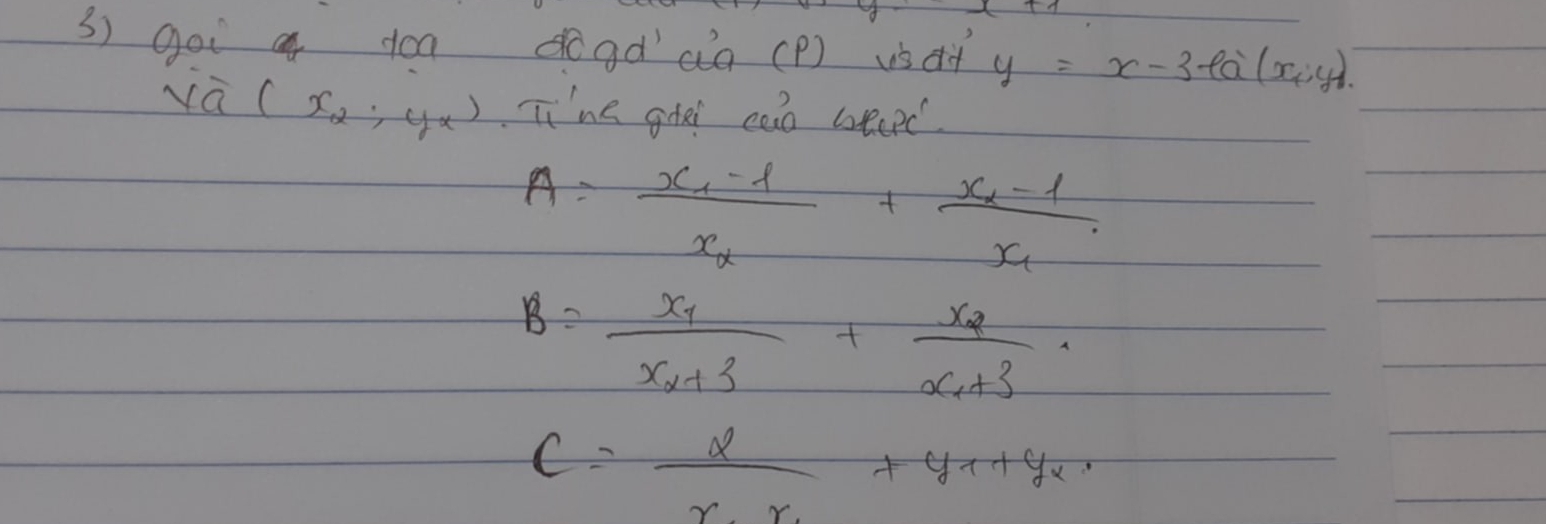 y = x + 1
3) gọi tọa độ gđ của (P) và đt y = x - 3 là (x₁; y₁).
và (x₂; y₂). Tính gtrị của bthức.
A = \frac{x₁ - 1}{x₂} + \frac{x₂ - 1}{x₁}.
B = \frac{x₁}{x₂ + 3} + \frac{x₂}{x₁ + 3}.
C = \frac{2}{x₁ x₂} + y₁ + y₂.